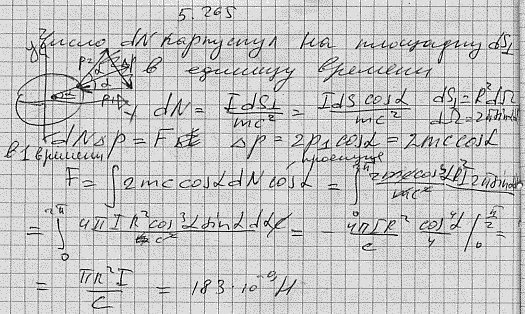 5.265
Число dN корпускул на площадку dS₁
в единицу времени
dN = IdS₁/mc² = IdS cosα/mc² dS₁ = R²dΩ
dΩ = 2π sinα dα
dNΔp = F Δp = 2p₁cosα = 2mc cosα
в 1 времени проекция
F = ∫ 2mc cosα dN cosα = ∫₀ 2mc cos³α R² I 2π sinα dα/mc²
= ∫₀ 4πIR² cos³α sinα dα/c = - 4πIR²/c cos⁴α/4 |₀^(π/2) =
= πR²I/C = 183·10⁻⁹ Н